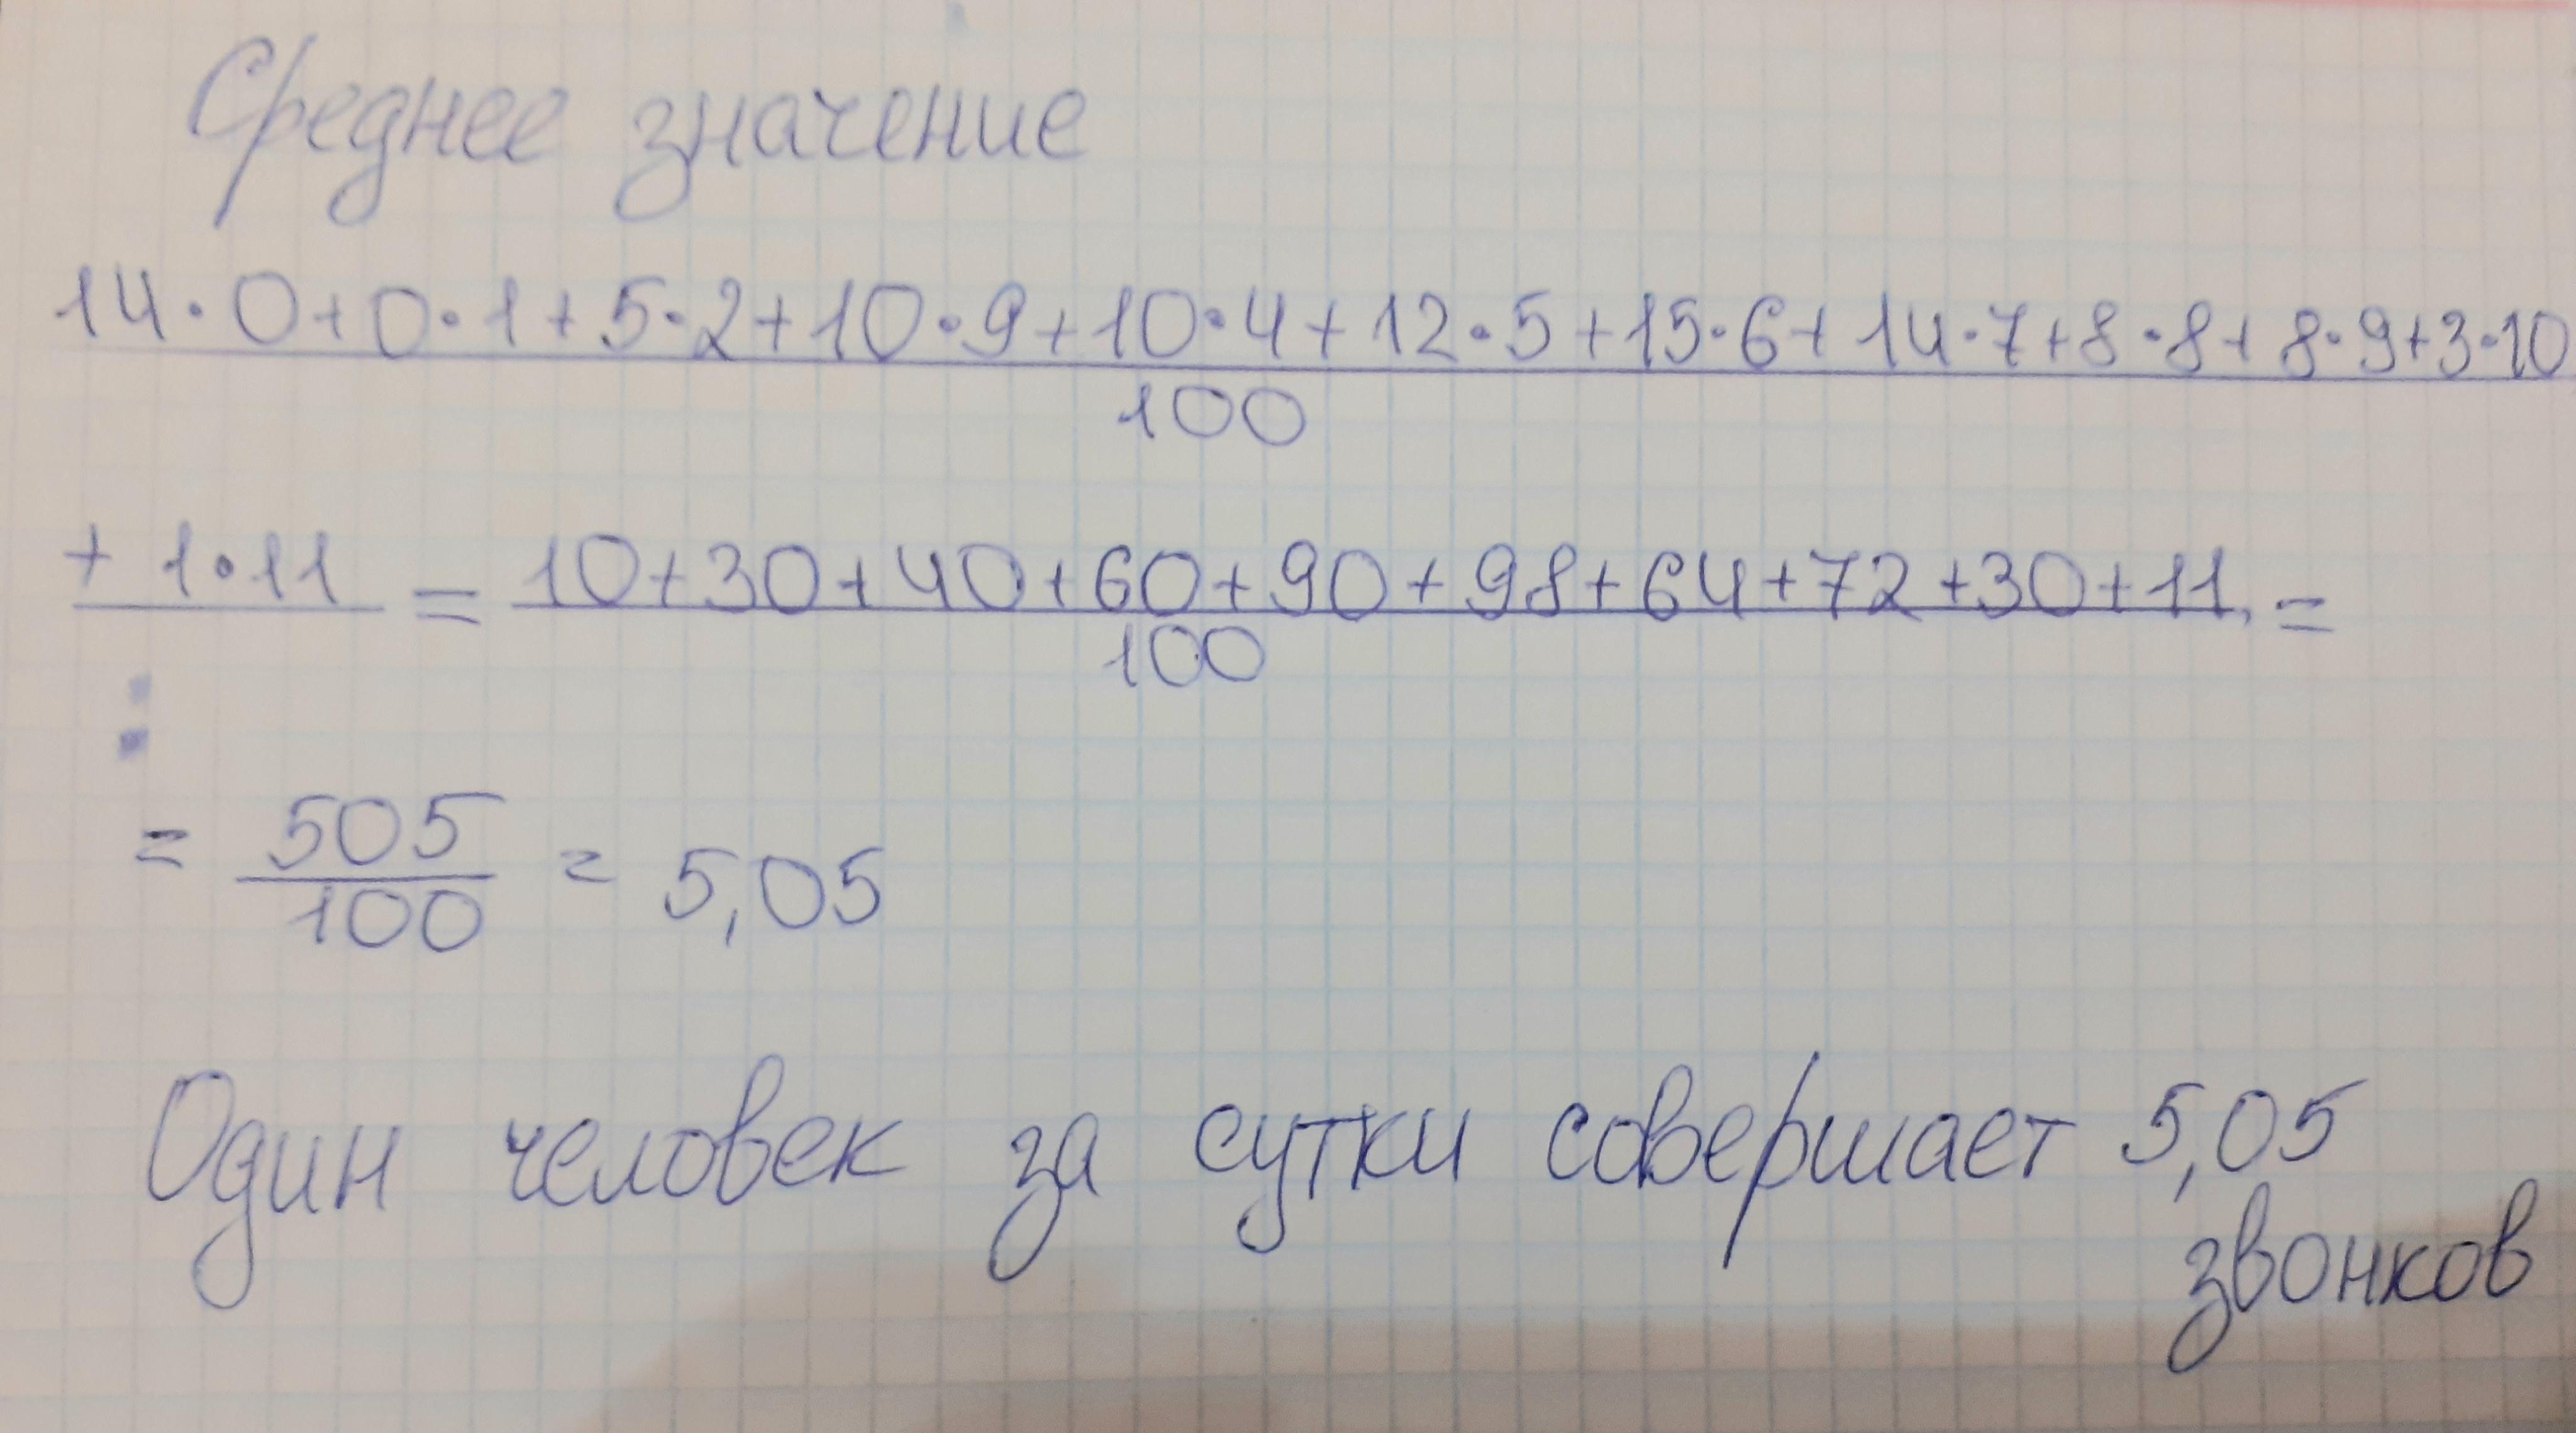 Среднее значение
14·0+0·1+5·2+10·9+10·4+12·5+15·6+14·7+8·8+8·9+3·10
100
+ 1·11 = 10+30+40+60+90+98+64+72+30+11 =
100
= 505 = 5,05
100
Один человек за сутки совершает 5,05
звонков